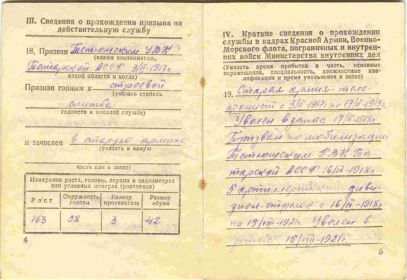 III. Сведения о прохождении призыва на
действительную службу
18. Призван Тетюшским УВК
(каким военкоматом,
Татарской АССР 3/II-1917г.
какой области и когда)
Признан годным к строевой
(указать степень
службе
годности к военной службе)
и зачислен в старую армию
(указать в какую
часть или в запас)
Измерения роста, головы, ступни в сантиметрах
или условных номерах (ростовках)
Рост Окружность головы Размер противогаза Размер обуви
163 58 3 42
4
IV. Краткие сведения о прохождении
службы в кадрах Красной Армии, Военно-
Морского флота, пограничных и внутрен-
них войск Министерства внутренних дел
(Указать время прибытия в часть, основные
перемещения, специальность, должностные ква-
лификации и время увольнения в запас)
19. Старая армия
с 3/II 1917г по 1918г.
Уволен в запас 1918г.
Призван по мобилизации
Тетюшским РВК Та-
тарской АССР 16/II-1918г.
5 артиллерийский диви-
зион с 16/II-1918г
по 15/III-1921г. Уволен в
15/III-1921г.
5